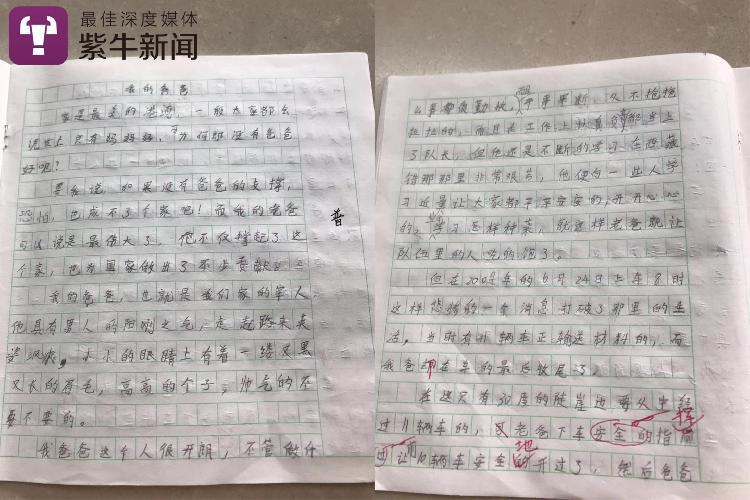 最佳深度媒体
紫牛新闻
我的爸爸
家是最美的港湾，一般大家都么
说世上只有妈妈好，可为何却没有爸爸
好呢？
要我说，如果没有爸爸的支撑，
恐怕，也成不了个家吧！而我的爸爸
可以说是最伟大了，他不仅撑起了这
个家，也为国家做出了不少贡献。
普
我的爸爸，也就是我们家的军人
他具有男人的阳刚之气，走起路来英
姿飒爽，小小的眼睛上有着一缕又黑
又长的眉毛，高高的个子，帅气的不
要不要的。
我爸爸这个人很开朗，不管做什
么事都很勤快，而且果断，从不拖拖
拉拉的，而且在工作上认真负责都当上
了队长，但他还是不断的学习，在西藏
错那那里非常艰苦，他便向一些人学
习近量让大家都平平安安的，开开心心
的，学习怎样种菜，就这样老爸就让
队伍里的人吃的饱了。
但在年的6月24日上午8时
这样悲痛的一条消息打破了那里的生
活，当时有11辆车正输送材料的，而
我爸却在车的最后收尾了。
在这只有30度的陡崖边要从中经
过11辆车的，老爸下车安全的指
挥
让前10辆车安全地开过了，然后爸爸